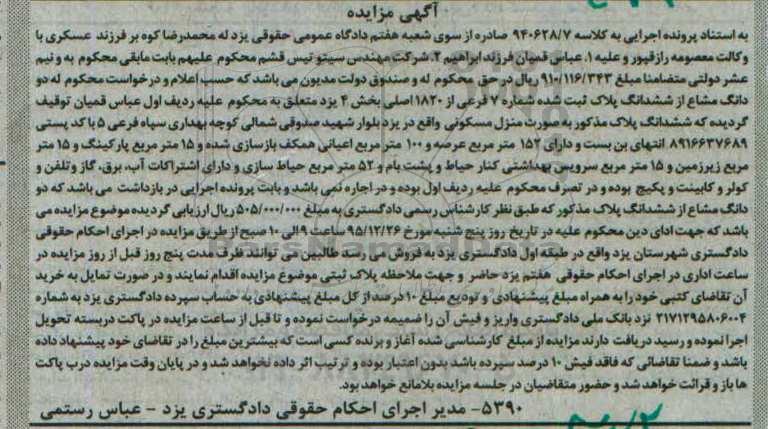 آگهی مزایده
به استناد پرونده اجرایی به کلاسه ۹۴۰۶۲۸/۷ صادره از سوی شعبه هفتم دادگاه عمومی حقوقی یزد له محمدرضا کوه بر فرزند عسکری با
وکالت معصومه رازقپور و علیه ۱. عباس قمیان فرزند ابراهیم ۲. شرکت مهندس سیتو تیس قشم محکوم علیهم بابت مابقی محکوم به و نیم
عشر دولتی متضامنا مبلغ ۹۱۰/۱۱۶/۳۴۳ ریال در حق محکوم له و صندوق دولت مدیون می باشد که حسب اعلام و درخواست محکوم له دو
دانگ مشاع از ششدانگ پلاک ثبت شده شماره ۷ فرعی از ۱۸۲۰ اصلی بخش ۴ یزد متعلق به محکوم علیه ردیف اول عباس قمیان توقیف
گردیده که ششدانگ پلاک مذکور به صورت منزل مسکونی واقع در یزد بلوار شهید صدوقی شمالی کوچه بهداری سپاه فرعی ۵ با کد پستی
۸۹۱۶۶۳۷۶۸۹ انتهای بن بست و دارای ۱۵۲ متر مربع عرصه و ۱۰۰ متر مربع اعیانی همکف بازسازی شده و ۱۵ متر مربع پارکینگ و ۱۵ متر
مربع زیرزمین و ۱۵ متر مربع سرویس بهداشتی کنار حیاط و پشت بام و ۵۲ متر مربع حیاط سازی و دارای اشتراکات آب، برق، گاز و تلفن و
کولر و کابینت و پکیج بوده و در تصرف محکوم علیه ردیف اول بوده و در اجاره نمی باشد و بابت پرونده اجرایی در بازداشت می باشد که دو
دانگ مشاع از ششدانگ پلاک مذکور که طبق نظر کارشناس رسمی دادگستری به مبلغ ۵۰۵/۰۰۰/۰۰۰ ریال ارزیابی گردیده موضوع مزایده می
باشد که جهت ادای دین محکوم علیه در تاریخ روز پنج شنبه مورخ ۹۵/۱۲/۲۶ ساعت ۹ الی ۱۰ صبح از طریق مزایده در اجرای احکام حقوقی
دادگستری شهرستان یزد واقع در طبقه اول دادگستری یزد به فروش می رسد طالبین می توانند ظرف مدت پنج روز قبل از روز مزایده در
ساعت اداری در اجرای احکام حقوقی هفتم یزد حاضر و جهت ملاحظه پلاک ثبتی موضوع مزایده اقدام نمایند و در صورت تمایل به خرید
آن تقاضای کتبی خود را به همراه مبلغ پیشنهادی و تودیع مبلغ ۱۰ درصد از کل مبلغ پیشنهادی به حساب سپرده دادگستری یزد به شماره
۲۱۷۱۲۹۵۸۰۶۰۰۴ نزد بانک ملی دادگستری واریز و فیش آن را ضمیمه درخواست نموده و تا قبل از ساعت مزایده در پاکت دربسته تحویل
اجرا نموده و رسید دریافت دارند مزایده از مبلغ کارشناسی شده آغاز و برنده کسی است که بیشترین مبلغ را در تقاضای خود پیشنهاد داده
باشد و ضمنا تقاضائی که فاقد فیش ۱۰ درصد سپرده باشد بدون اعتبار بوده و ترتیب اثر داده نخواهد شد و در پایان وقت مزایده درب پاکت
ها باز و قرائت خواهد شد و حضور متقاضیان در جلسه مزایده بلامانع خواهد بود.
۵۳۹۰- مدیر اجرای احکام حقوقی دادگستری یزد - عباس رستمی